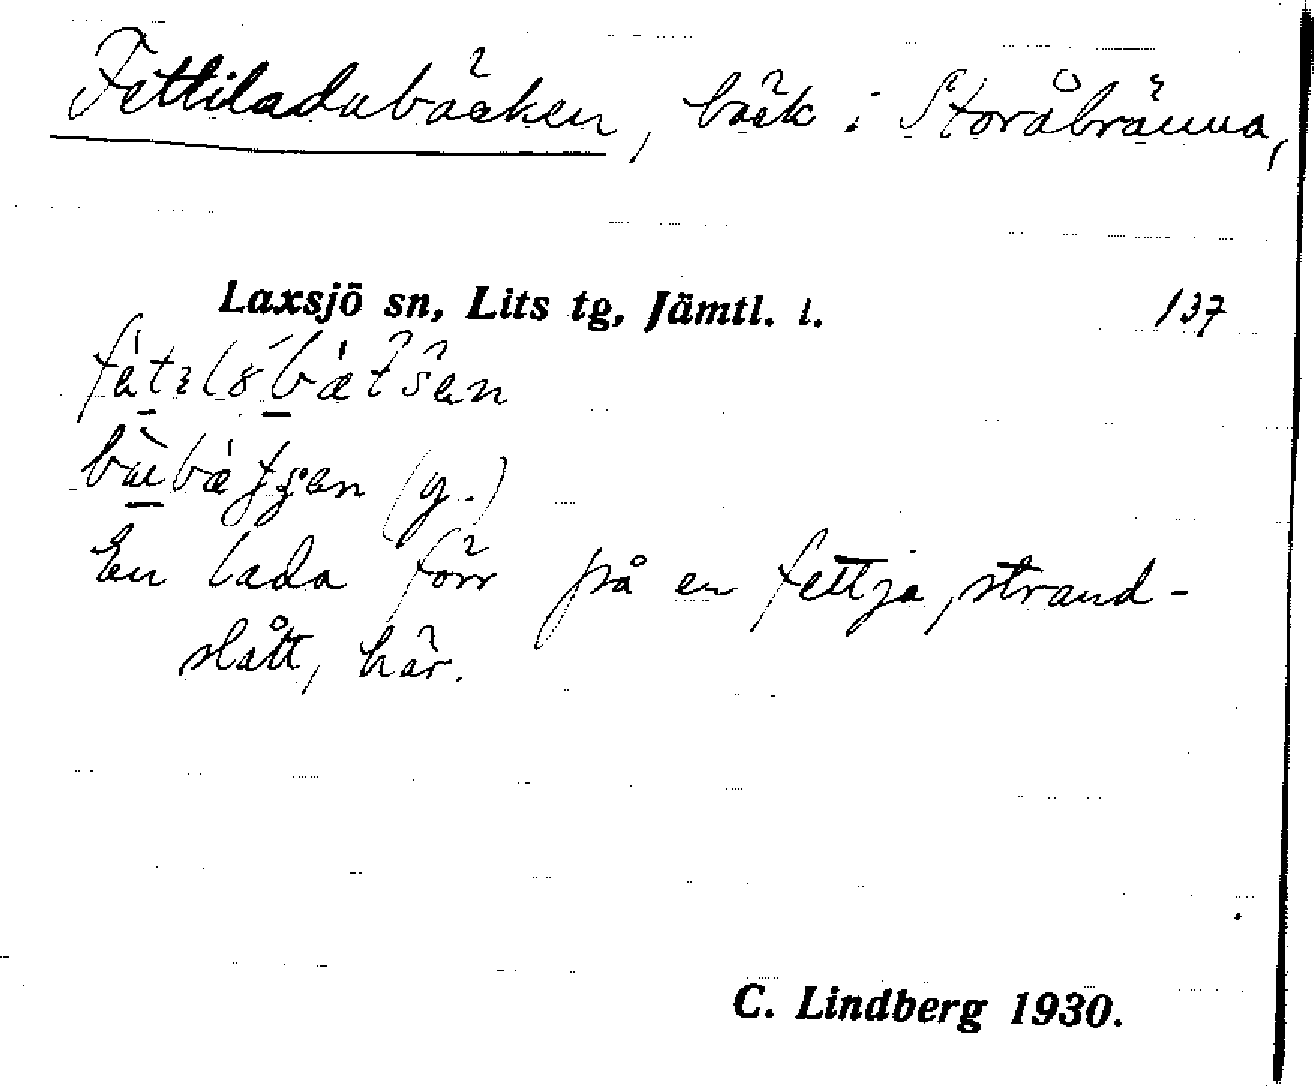 Fettiladubäcken, bäck i Storåbränna,
Laxsjö sn, Lits tg, Jämtl. l.
137
(g.)
En lada förr på en fettja, strand-
slått, här.
C. Lindberg 1930.